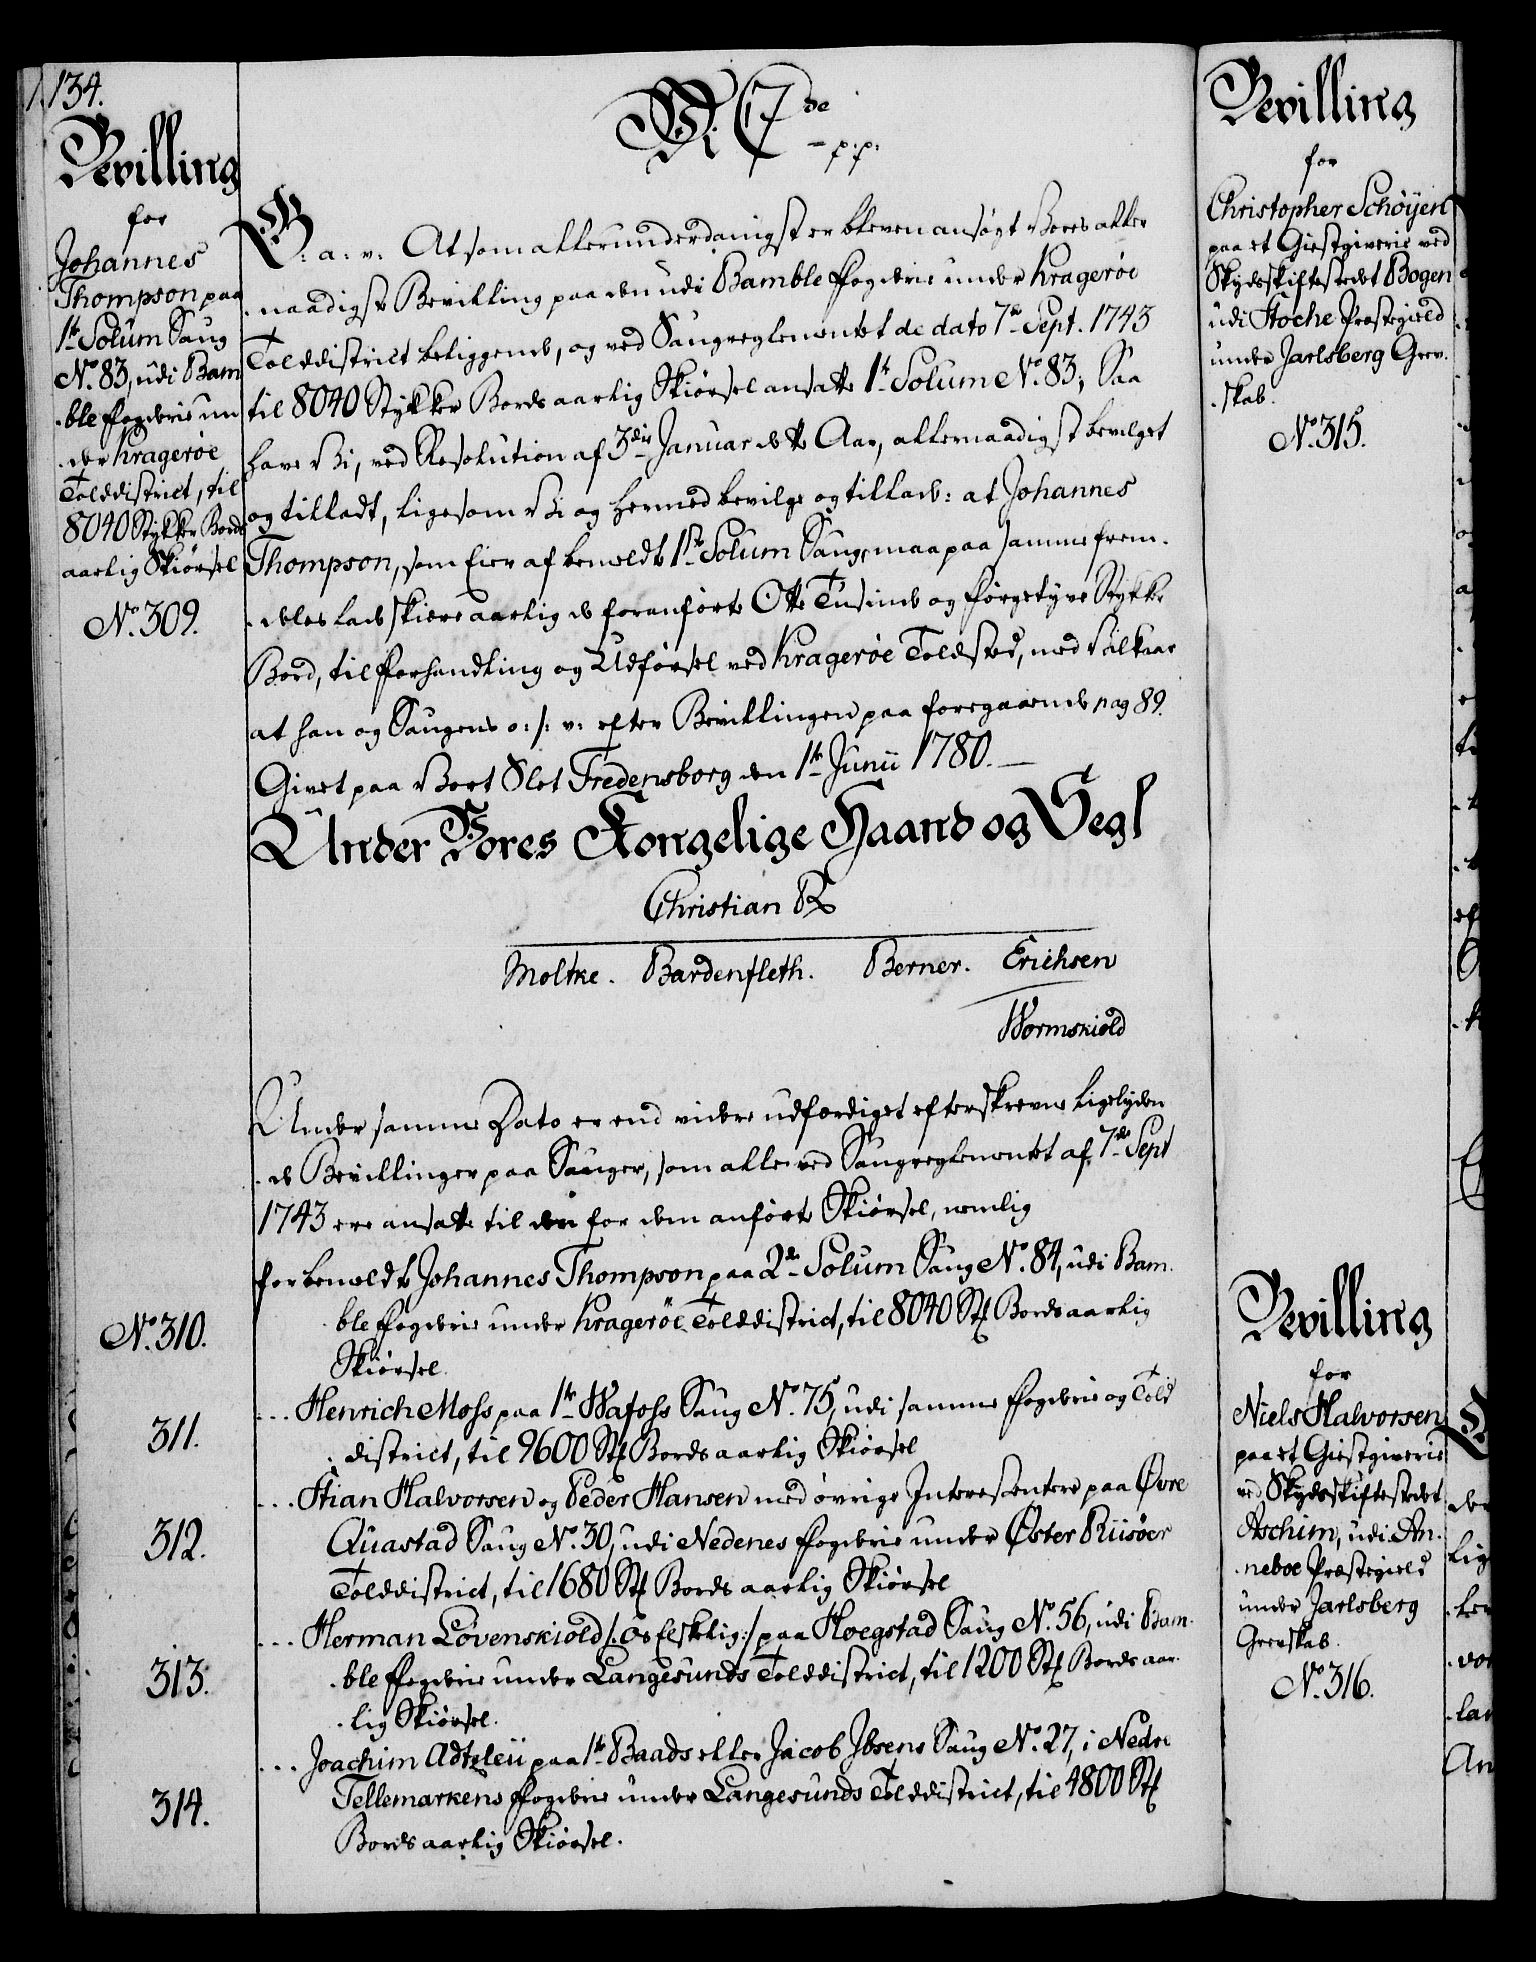 134.
Bevilling
for
Johannes
Thompson paa
1te Solum Saug
No. 83, udi Bam
-ble Fogderie un
-der Kragerøe
Tolddistrict, til
8040 Stykker Bords
aarlig Skiørsel
No. 309.
Vi C 7de
p:p:
G: a: v: At som allerunderdanigst er bleven ansøgt Vores aller
-naadigste Bevilling paa den udi Bamble Fogderie under Kragerøe
Tolddistrict beliggende, og ved Saugreglementet de dato 7de Sept. 1743
til 8040 Stykker Bords aarlig Skiørsel ansatte 1te Solum No. 83; Saa
have Vi, ved Resolution af 3die Januar dette Aar, allernaadigst bevilget
og tilladt, ligesom Vi og hermed bevilge og tillade: at Johannes
Thompson, som Eier af bemeldte 1ste Solum Saug, maa paa samme frem-
-deles lade skiære aarlig de foranførte Otte Tusinde og Fyrgetyve Stykke
Bord, til Forhandling og Udførsel ved Kragerøe Toldsted, med Vilkaar
at han og Saugens o: s: v: efter Bevillingen paa foregaaende pag 89.
Givet paa Vort Slot Fredensborg den 1te Junii 1780.—
Under Vores Kongelige Haand og Segl
Christian R
Moltke. Bardenfleth. Berner. Erichsen
Wormskiold
Under samme Dato er end videre udfærdiget efterskrevne ligelyden
-de Bevillinger paa Sauger, som alle ved Saugreglementet af 7de Sept
1743 ere ansatte til den for dem anførte Skiørsel, nemlig
for bemeldte Johannes Thompson paa 2de Solum Saug No. 84, udi Bam-
No. 310.
-ble Fogderie under Kragerøe Tolddistrict, til 8040 Stk Bords aarlig
Skiørsel.
311.
... Henrich Moss paa 1te Wafoss Saug No. 75, udi samme Fogderie og Told
-district, til 9600 Stk Bords aarlig Skiørsel
... Stian Halvorsen og Peder Hansen med øvrige Interessentere paa Øvre
312.
Quastad Saug No. 30, udi Nedenes Fogderie under Øster Riisøer
Tolddistrict, til 1680 Stk Bords aarlig Skiørsel
... Herman Løvenskiold /: Os Elskelig :/ paa Hoegstad Saug No. 56, udi Bam-
313.
-ble Fogderie under Langesunds Tolddistrict, til 1200 Stk Bords aar-
-lig Skiørsel.
... Joachim Adtzleü paa 1te Baads eller Jacob Jbsens Saug No. 27, i Nedre
314.
Tellemarkens Fogderie under Langesunds Tolddistrict, til 4800 Stk
Bords aarlig Skiørsel.
Bevilling
for
Christopher Schöyen
paa et Giestgiverie ved
Skydsskiftestedet Bogen
udi Stoche Præstegield
under Jarlsberg Grev-
-skab.
No. 315.
Bevilling
for
Niels Halvorsen
paa et Giestgiverie
ved Skydsskiftestedet
Aschim, udi An-
-neboe Præstegield
under Jarlsberg
Grevskab.
No. 316.